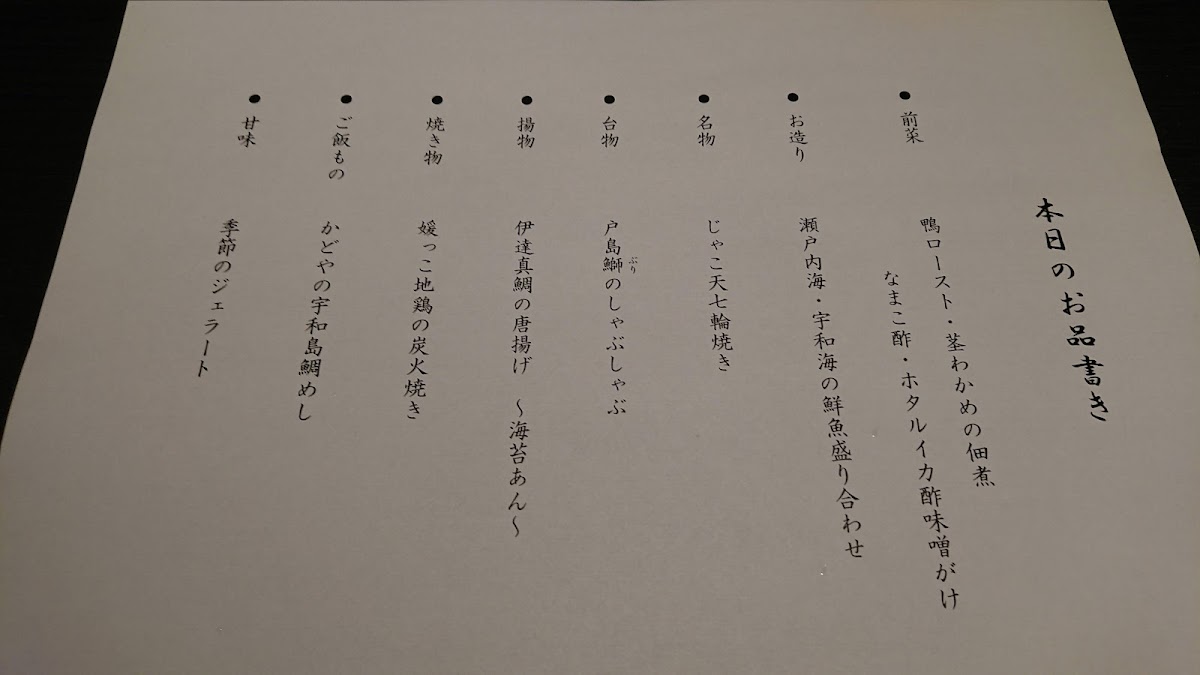 本日のお品書き
● 前菜 鴨ロースト・茎わかめの佃煮
なまこ酢・ホタルイカ酢味噌がけ
● お造り 瀬戸内海・宇和海の鮮魚盛り合わせ
● 名物 じゃこ天七輪焼き
● 台物 戸島鰤のしゃぶしゃぶ
ぶり
● 揚物 伊達真鯛の唐揚げ 〜海苔あん〜
● 焼き物 媛っこ地鶏の炭火焼き
● ご飯もの かどやの宇和島鯛めし
● 甘味 季節のジェラート